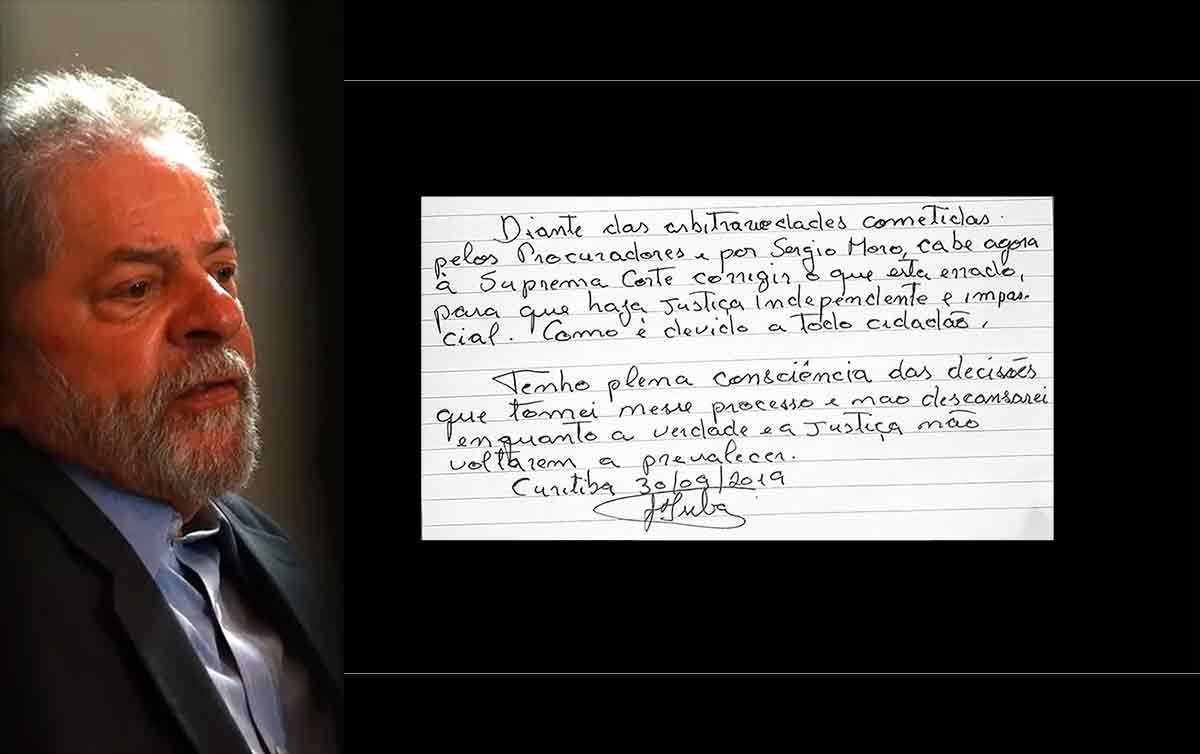 Diante das arbitrariedades cometidas
pelos Procuradores e por Sergio Moro, cabe agora
à Suprema Corte corrigir o que esta errado,
para que haja Justiça Independente e impar-
cial. Como é devido a todo cidadão.
Tenho plena consciência das decisões
que tomei nesse processo e não descansarei
enquanto a verdade e a Justiça não
voltarem a prevalecer.
Curitiba 30/09/2019
Lula